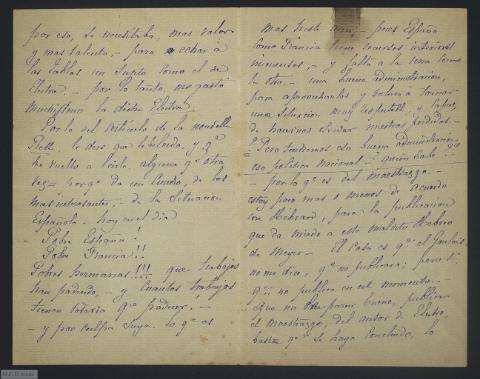 por eso, se necesitaba, mas valor
y mas talento, - para echar á
las tablas un Sujeto como el de
Electra. - por lo tanto, me gustó
muchísimo la dicha Electra.
Por lo del Artículo de la nouvelle
he vuelto a leerla, alguna que otra
vez = porque da un cuadro, de los
mas interesantes, de la Situacion
Española - hoy en el dia
Pobre España!
Pobre Francia!!
Pobres hermanas!!! que trabajos
han padecido, - y cuantos trabajos
tienen todavia que padecer! -
- y por culpa Suya. lo que es
mas triste - pues España
como Francia tiene recursos interiores
inmensos, - y falta a la una como
la otra, - una buena administracion,
para aprovecharlos y volver á tomar
una Situacion muy respetable y capaz,
de hacernos olvidar nuestras perdidas. -
Pero tendremos esa buena administracion -
eso politico nacional? quien Sabe
- por lo que es del maestrazgo. -
estoy poco mas o menos de acuerdo
con Hébrard, para la publicacion
que da miedo a este maldito
de Meyer - El Caso es que el Gaulois
no me dice, que no publicara; pero
que no publica en este momento. -
que no parece bueno, publicar
el maestrazgo, del autor de Electra,
hasta que se haya concluido, lo